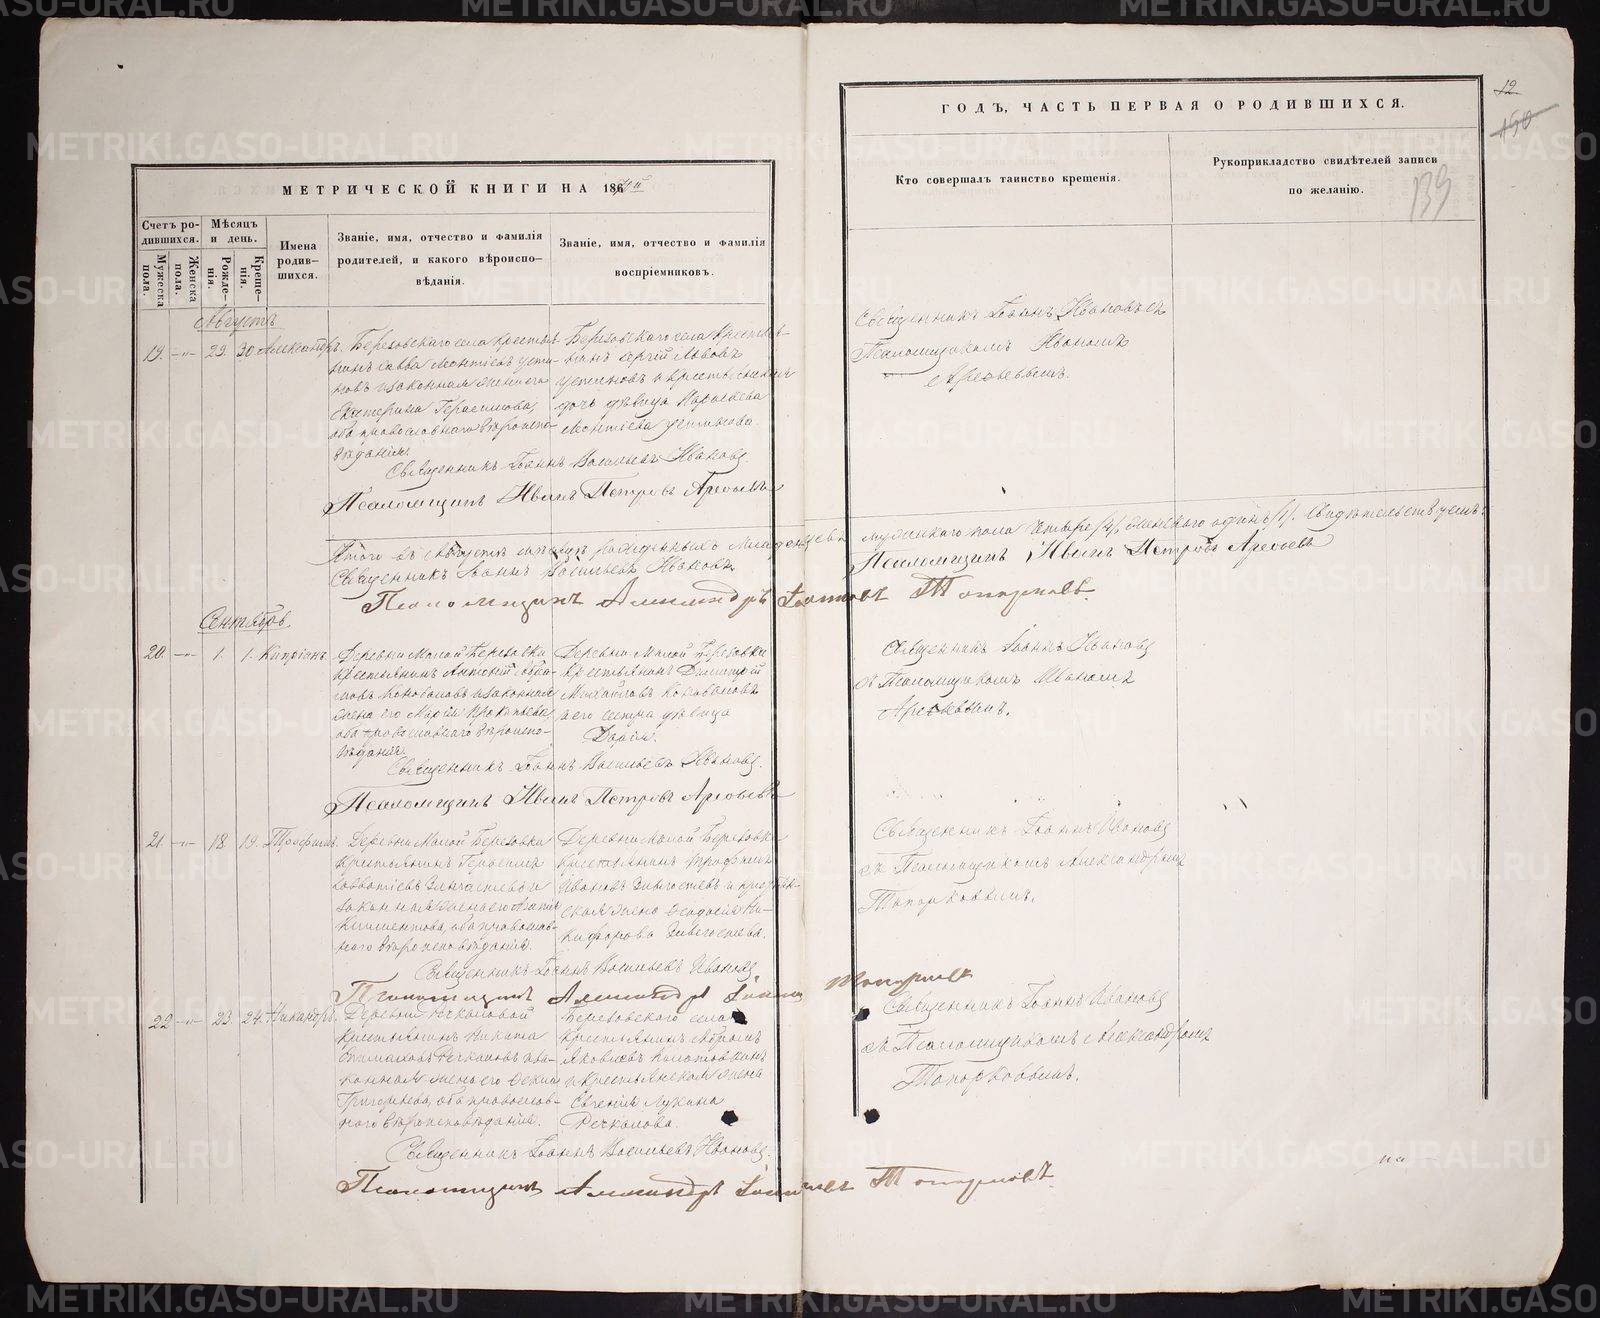 METRIKI.GASO-URAL.RU
МЕТРИЧЕСКОЙ КНИГИ НА 186
Счетъ ро-
дившихся.
Мѣсяцъ
и день.
Имена
родив-
шихся.
Званіе, имя, отчество и фамилія
родителей, и какого вѣроиспо-
вѣданія.
Званіе, имя, отчество и фамилія
воспріемниковъ.
Мужеска
пола.
Женска
пола.
Рожде-
нія.
Креще-
нія.
Августъ
19. 29. 30. Александръ.
Березовскаго села крестья-
нинъ Савва Леонтіевъ Усти-
новъ и законная жена его
Екатерина Герасимова,
оба православнаго вѣроиспо-
вѣданія.
Березовскаго села крестья-
нинъ Сергій Львовъ
Устиновъ и крестьянская
дочь дѣвица
Леонтіева Устинова.
Священникъ Іоаннъ Васильевъ Ивановъ.
Псаломщикъ Иванъ Петровъ Арефьевъ
Итого въ Августѣ мѣсяцѣ рожденныхъ младенцевъ
Священникъ Іоаннъ Васильевъ Ивановъ
Псаломщикъ Александръ Іоанновъ Топорковъ.
Сентябрь.
20. 1. 1. Кипріанъ
Деревни Малой Березовки
крестьянинъ Авра-
мовъ Коноваловъ и законная
жена его Марія Прокопьева,
оба православнаго вѣроиспо-
вѣданія.
Деревни Малой Березовки
крестьянинъ Димитрій
Михайловъ Коновалов
и его сестра дѣвица
Дарія.
Священникъ Іоаннъ Васильевъ Ивановъ.
Псаломщикъ Иванъ Петровъ Арефьевъ
21. 18. 19. Трофимъ.
Деревни Малой Березовки
крестьянинъ Герасимъ
Савватіевъ и
законная жена его
Климентова, оба православ-
наго вѣроисповѣданія.
Деревни Малой Березовки
крестьянинъ Трофимъ
Ивановъ и крестьян-
ская жена Феодосія Ни-
кифорова
Священникъ Іоаннъ Васильевъ Ивановъ
Псаломщикъ Александръ Іоанновъ Топорковъ
22. 23. 24. Никандръ.
Деревни Речкаловой
крестьянинъ Никита
Речкаловъ и за-
конная жена его
Григорьева, оба православ-
наго вѣроисповѣданія.
Березовскаго села
крестьянинъ Абрамъ
Яковлевъ
и крестьянская жена
Евгенія Лукина
Речкалова.
Священникъ Іоаннъ Васильевъ Ивановъ.
Псаломщикъ Александръ Іоанновъ Топорковъ
ГОДЪ, ЧАСТЬ ПЕРВАЯ О РОДИВШИХСЯ.
12
150
139
Кто совершалъ таинство крещенія.
Рукоприкладство свидѣтелей записи
по желанію.
Священникъ Іоаннъ Ивановъ съ
Псаломщикомъ Иваномъ
Арефьевымъ.
мужескаго пола четыре /4/, женскаго одинъ /1/. Свидѣтельствуемъ:
Псаломщикъ Иванъ Петровъ Арефьевъ
Священникъ Іоаннъ Ивановъ
съ Псаломщикомъ Иваномъ
Арефьевымъ.
Священникъ Іоаннъ Ивановъ
съ Псаломщикомъ Александромъ
Топорковымъ.
Священникъ Іоаннъ Ивановъ
съ Псаломщикомъ Александромъ
Топорковымъ.